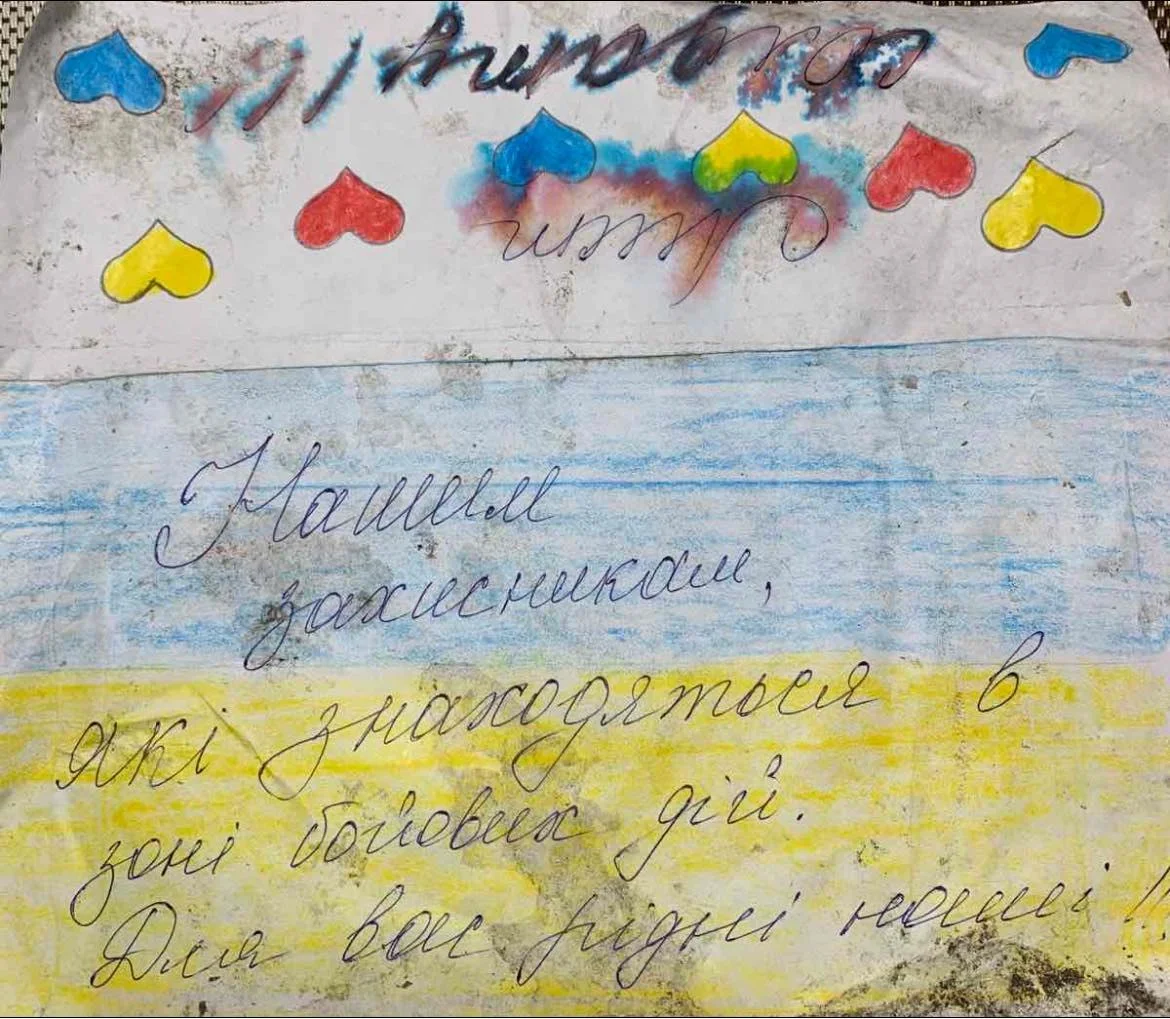 Лист
солдату !!!
Нашим
захисникам,
які знаходяться в
зоні бойових дій.
Для вас рідні наші !!!